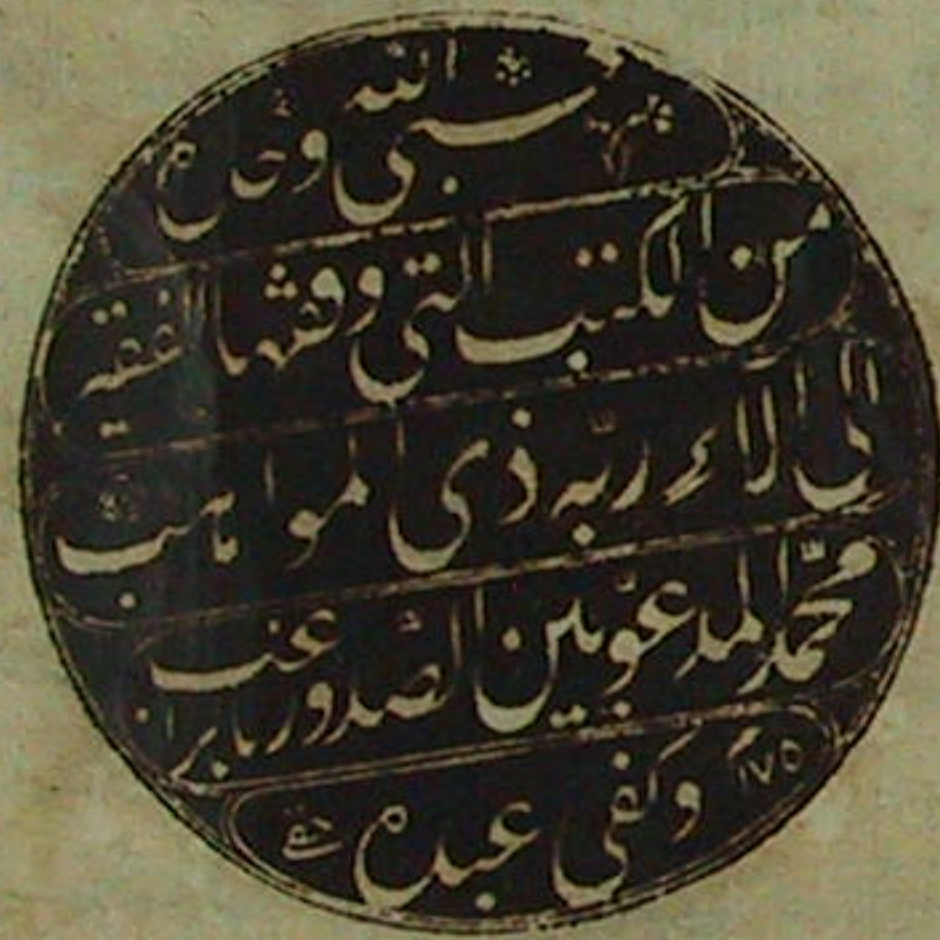 حسبي الله وحده
من الكتب التي وقفها الفقير
الى آلاء ربّه ذي المواهب
محمّد المدعوّ بين الصدور براغب
١١٧٥ وكفى عبده